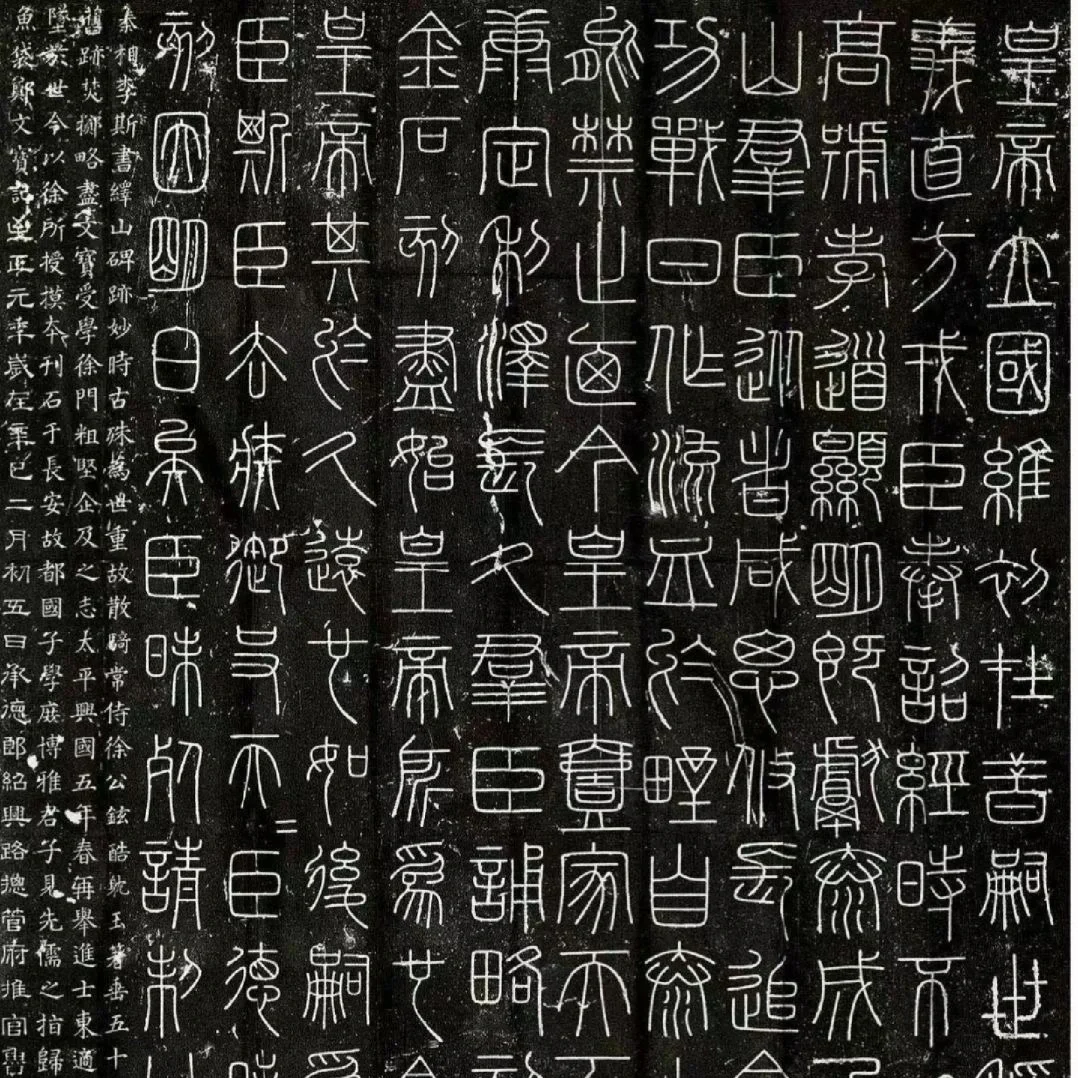 皇帝立國維初在昔嗣世
義直方戎臣奉詔經時不
高號孝道顯明既獻泰成
山羣臣從者咸思攸長追
功戰日作流血於野自泰
能禁止廼今皇帝壹家天
康定利澤長久羣臣誦略
金石刻盡始皇帝所為也
皇帝其於久遠也如後嗣
臣斯臣去疾御史夫=臣德
刻因明白矣臣昧死請制
秦相李斯書繹山碑跡妙時古殊為世重故散騎常侍徐公鉉酷耽玉箸垂五十
鴻跡焚擲略盡文寶受學徐門粗堅企及之志太平興國五年春再舉進士東適
墜於世今以徐所授摸本刊石于長安故都國子學庶博雅君子見先儒之指歸
魚袋鄭文寶記至正元年歲在辛巳二月初五日承德郎紹興路總管府推官